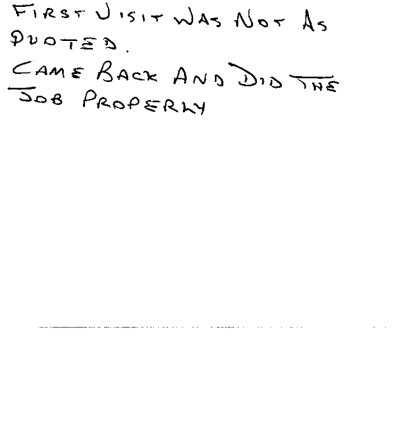 FIRST VISIT WAS NOT AS
QUOTED.
CAME BACK AND DID THE
JOB PROPERLY